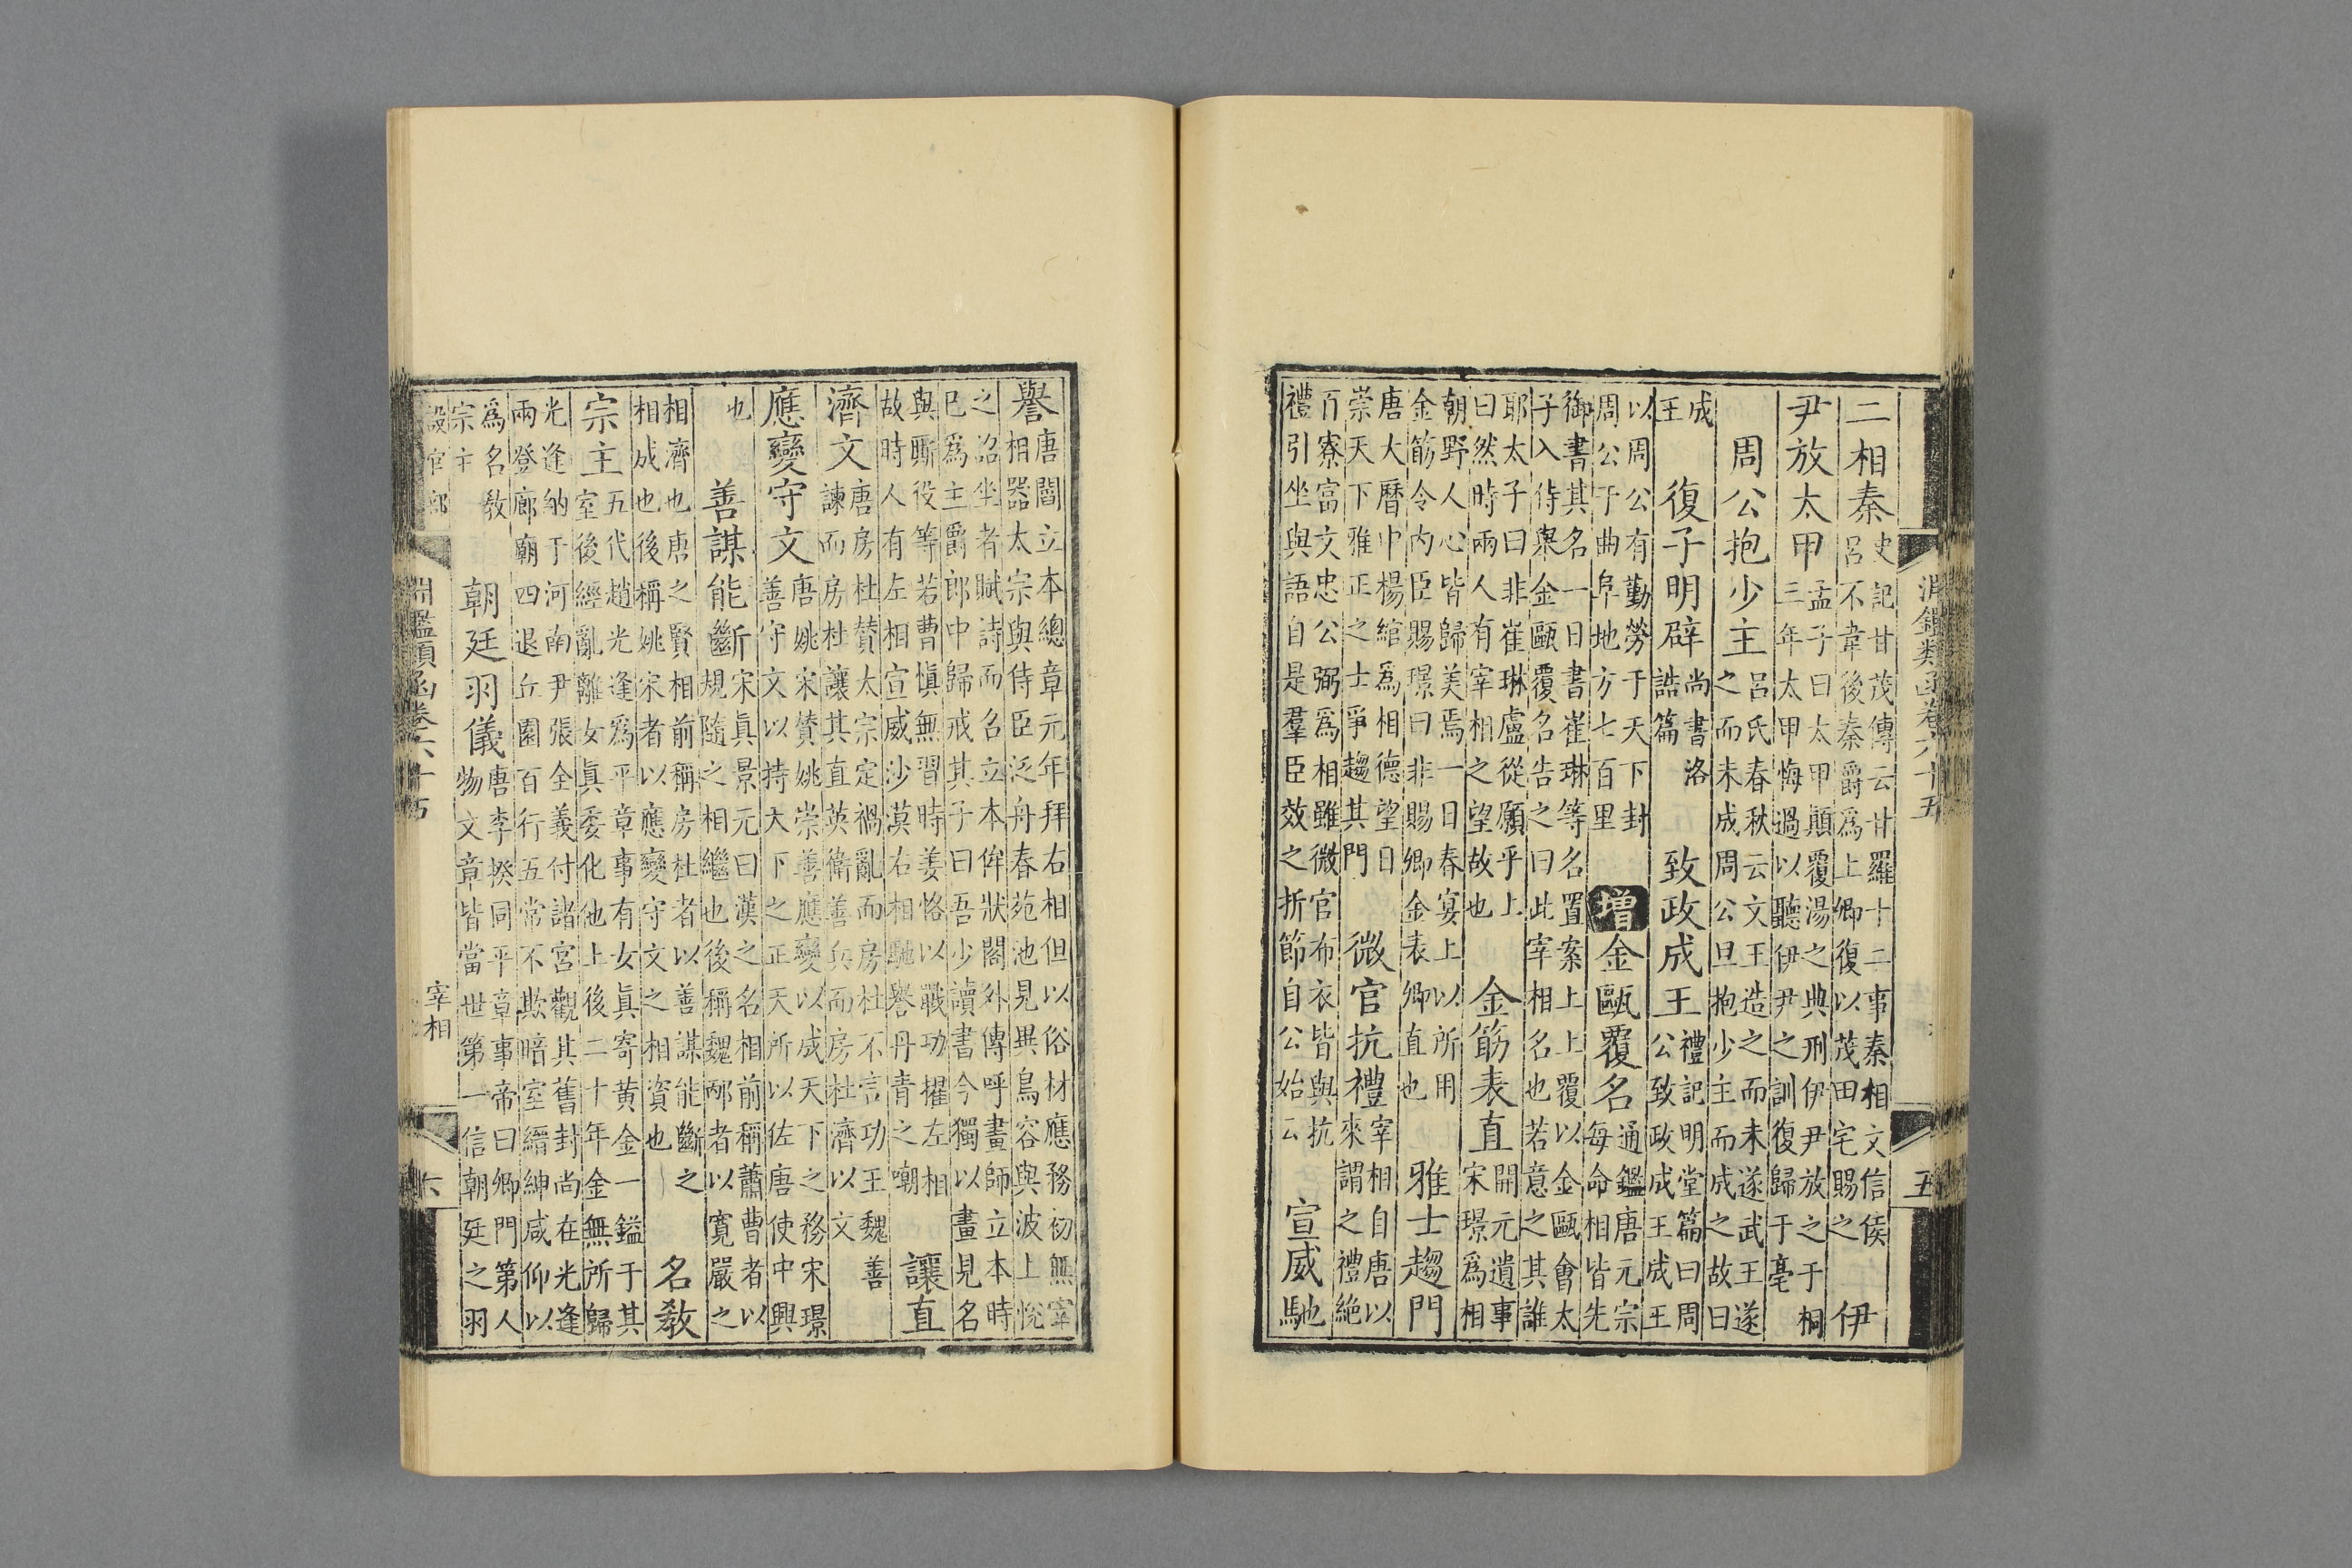 淵鑑類函卷六十五
五
二相秦
史記甘茂傳云甘羅十二事秦相文信侯
呂不韋後秦爵爲上卿復以茂田宅賜之
伊
尹放太甲
孟子曰太甲顛覆湯之典刑伊尹放之于桐
三年太甲悔過以聽伊尹之訓復歸于亳
周公抱少主
呂氏春秋云文王造之而未遂武王遂
之而未成周公旦抱少主而成之故曰
成
王
復子明辟
尚書洛
誥篇
致政成王
禮記明堂篇曰周
公致政成王成王
以周公有勤勞于天下封
周公于曲阜地方七百里
增
金甌覆名
通鑑唐元宗
每命相皆先
御書其名一日書崔琳等名置案上上覆以金甌會太
子入侍舉金甌覆名告之曰此宰相名也若意之其誰
耶太子曰非崔琳盧從願乎上
曰然時兩人有宰相之望故也
金筯表直
開元遺事
宋璟爲相
朝野人心皆歸美焉一日春宴上以所用
金筯令內臣賜璟曰非賜卿金表卿直也
雅士趨門
唐大曆中楊綰爲相德望日
崇天下雅正之士爭趨其門
微官抗禮
宰相自唐以
來謂之禮絶
百寮富文忠公弼爲相雖微官布衣皆與抗
禮引坐與語自是羣臣效之折節自公始云
宣威馳
譽
唐閻立本總章元年拜右相但以俗材應務初無宰
相器太宗與侍臣泛舟春苑池見異鳥容與波上悅
之詔坐者賦詩而名立本侔狀閣外傳呼畫師立本時
已爲主爵郎中歸戒其子曰吾少讀書今獨以畫見名
與廝役等若曹愼無習時姜恪以戰功擢左相
故時人有左相宣威沙漠右相馳譽丹青之嘲
讓直
濟文
唐房杜贊太宗定禍亂而房杜不言功王魏善
諫而房杜讓其直英衛善兵而房杜濟以文
應變守文
唐姚宋贊姚崇善應變以成天下之務宋璟
善守文以持天下之正天所以佐唐使中興
也
善謀能斷
宋眞景元曰漢之名相前稱蕭曹者以
規隨之相繼也後稱魏邴者以寬嚴之
相濟也唐之賢相前稱房杜者以善謀能斷之
相成也後稱姚宋者以應變守文之相資也
名敎
宗主
五代趙光逢爲平章事有女眞寄黃金一鎰于其
室後經亂離女眞委化他上後二十年金無所歸
光逢納于河南尹張全義付諸宮觀其舊封尚在光逢
兩登廊廟四退丘園百行五常不欺暗室縉紳咸仰以
爲名敎
宗主
朝廷羽儀
唐李揆同平章事帝曰卿門第人
物文章皆當世第一信朝廷之羽
設官部
淵鑑類函卷六十五
宰相
六